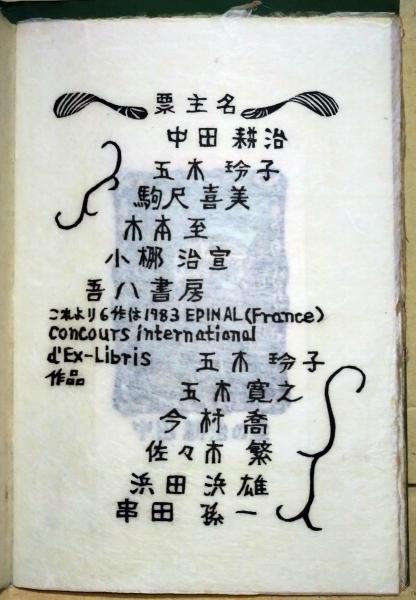 票主名
中田耕治
五木玲子
駒尺喜美
木本至
小梛治宣
吾八書房
これより6作は1983 EPINAL(France)
concours international
d'Ex-Libris 五木玲子
作品
五木寛之
今村喬
佐々木繁
浜田浜雄
串田孫一